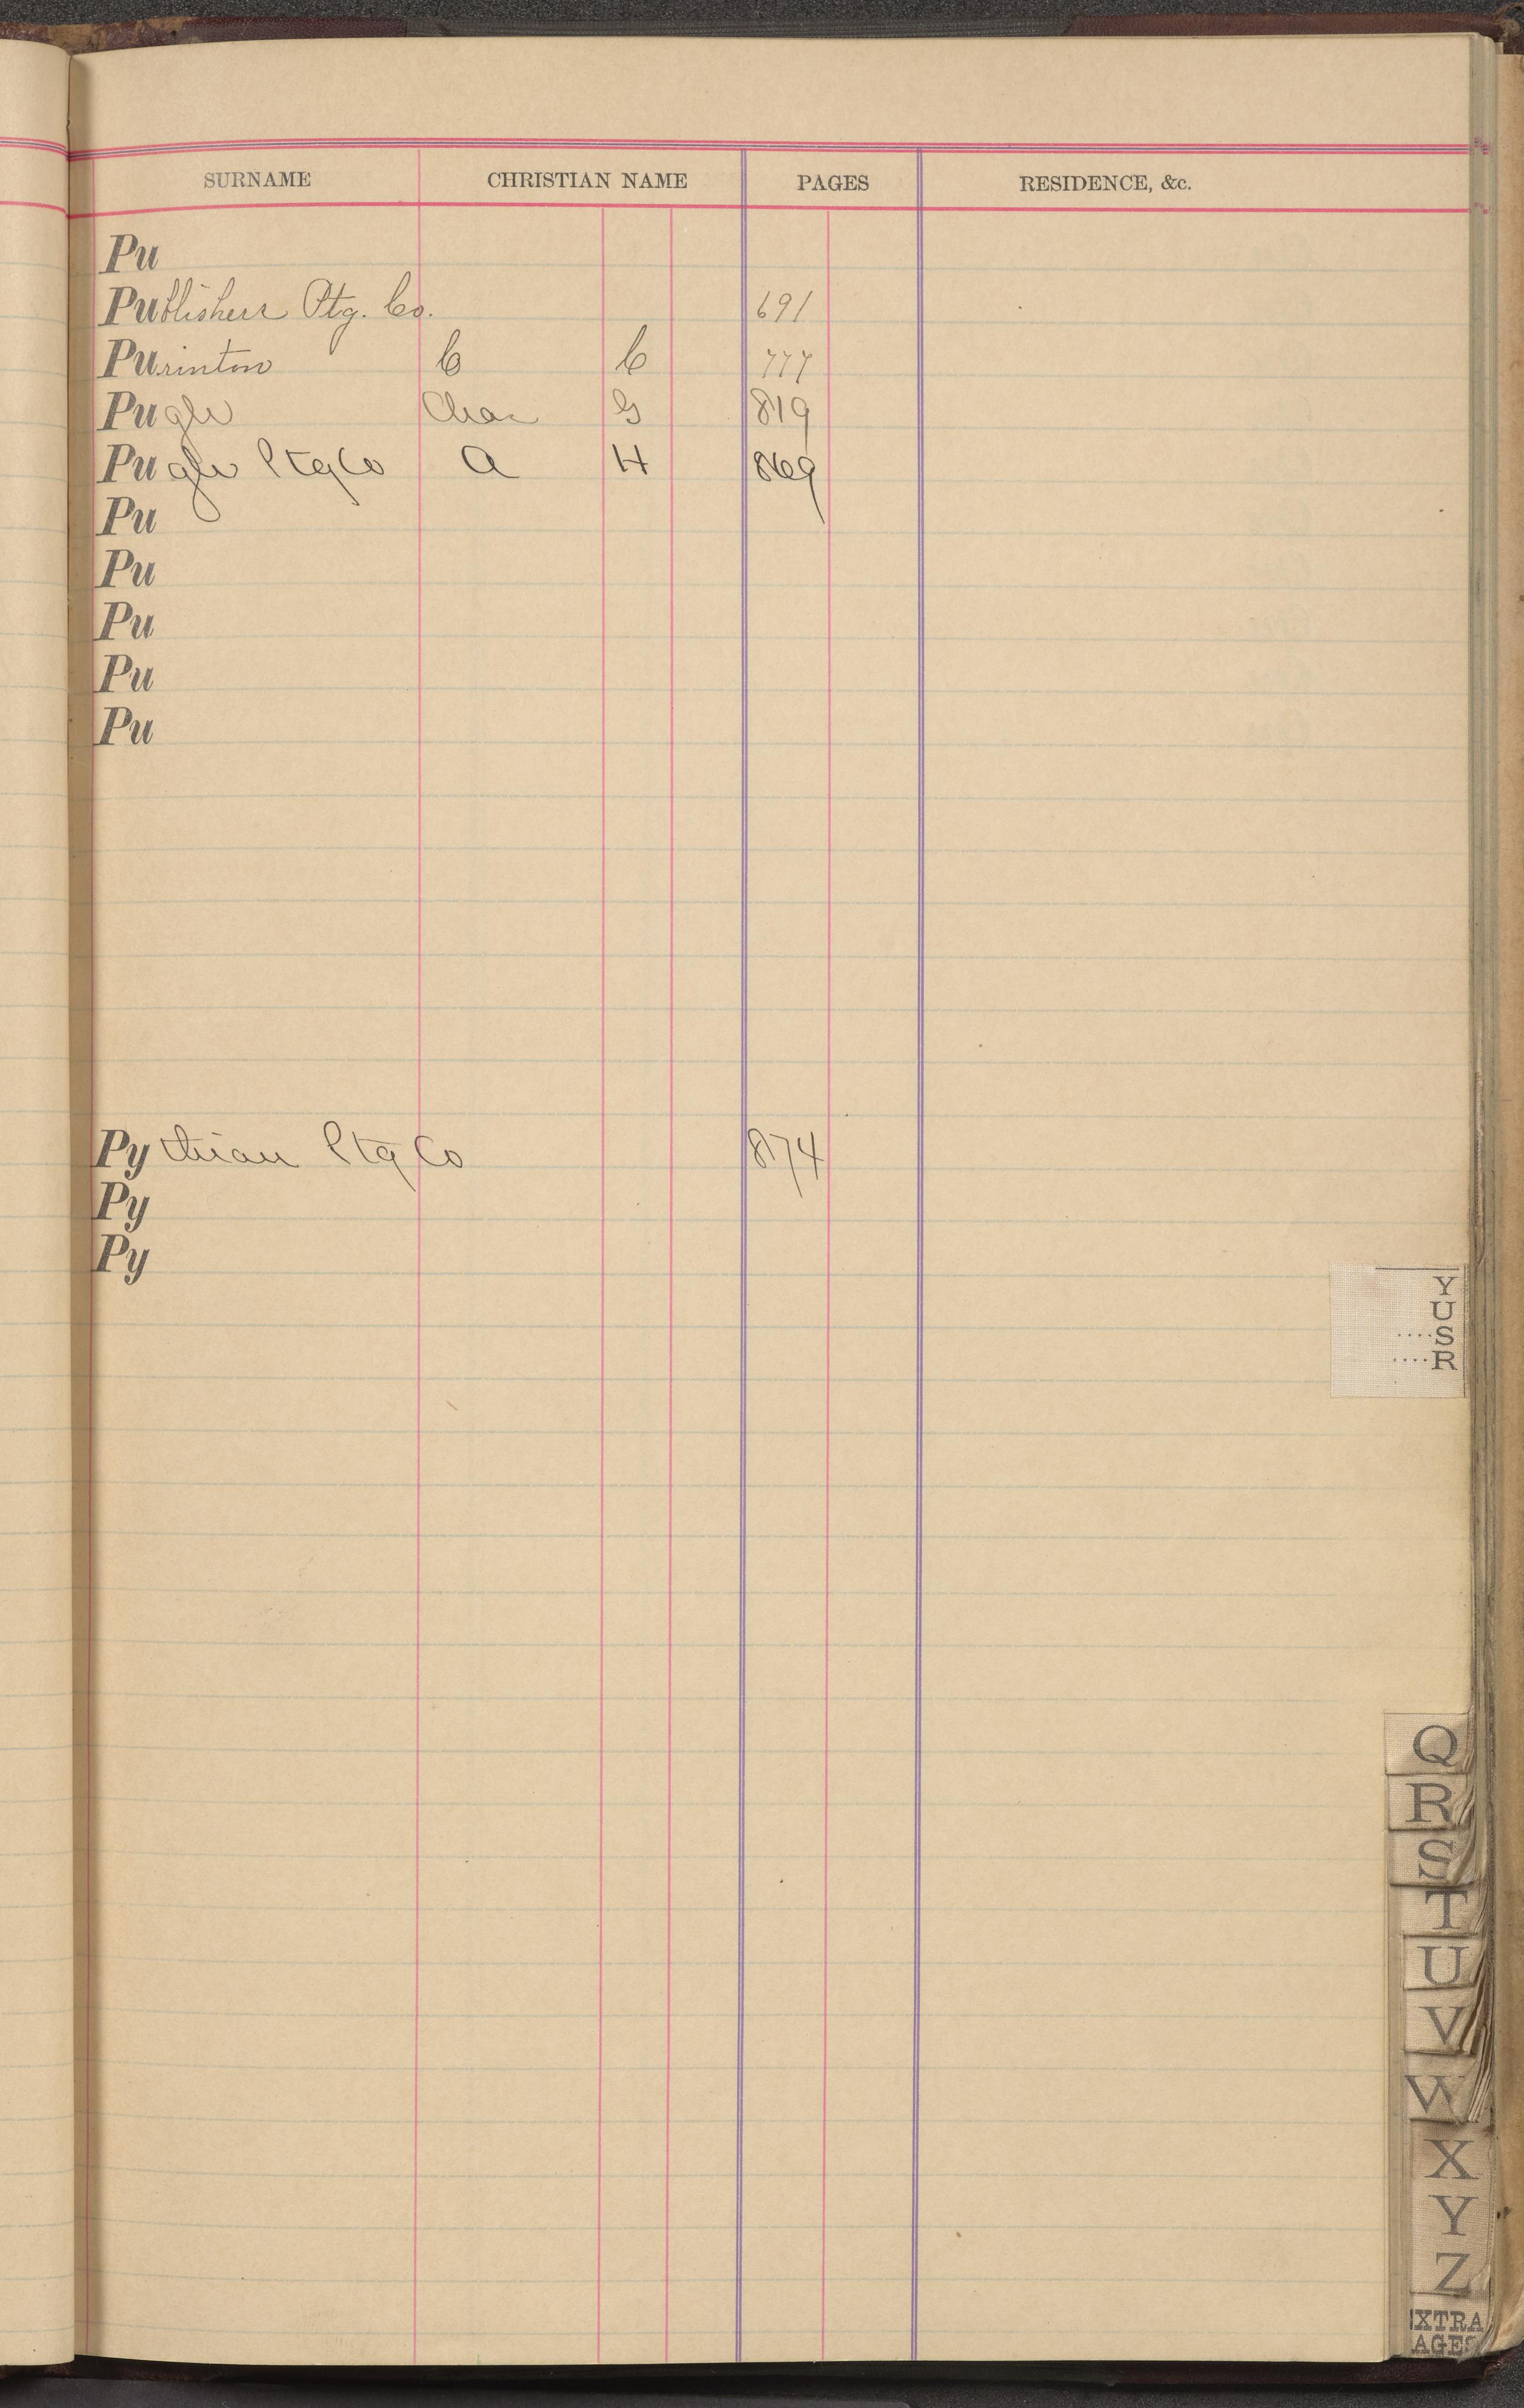 SURNAME CHRISTIAN NAME PAGES RESIDENCE, &c.
Pu
Publishers Ptg. Co. 691
Purinton C C 777
Pugh Chas G 819
Pugh Ptg Co A H 869
Pu
Pu
Pu
Pu
Pu
Pythian Ptg Co 874
Py
Py
Y
U
....S
....R
Q
R
S
T
U
V
W
X
Y
Z
EXTRA
AGES